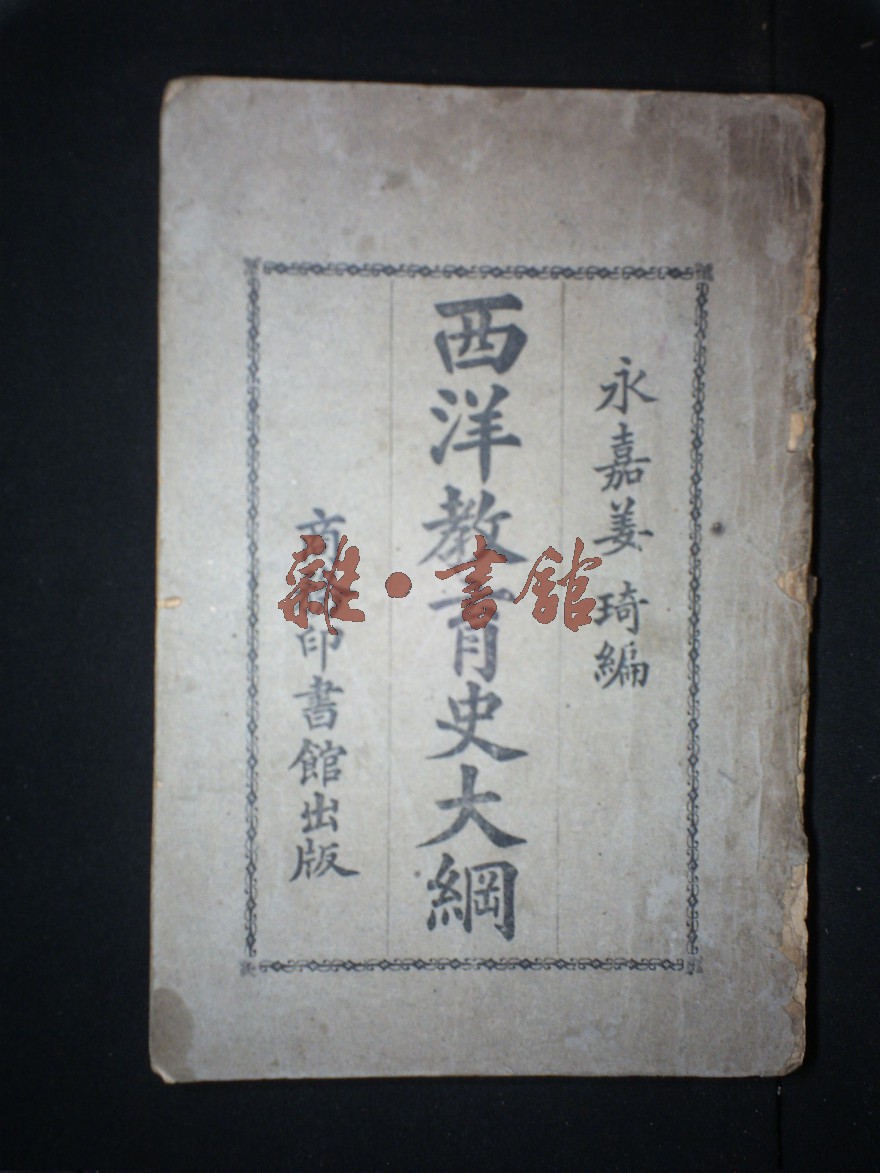 永嘉姜琦編
西洋教育史大綱
商務印書館出版
雜·書館